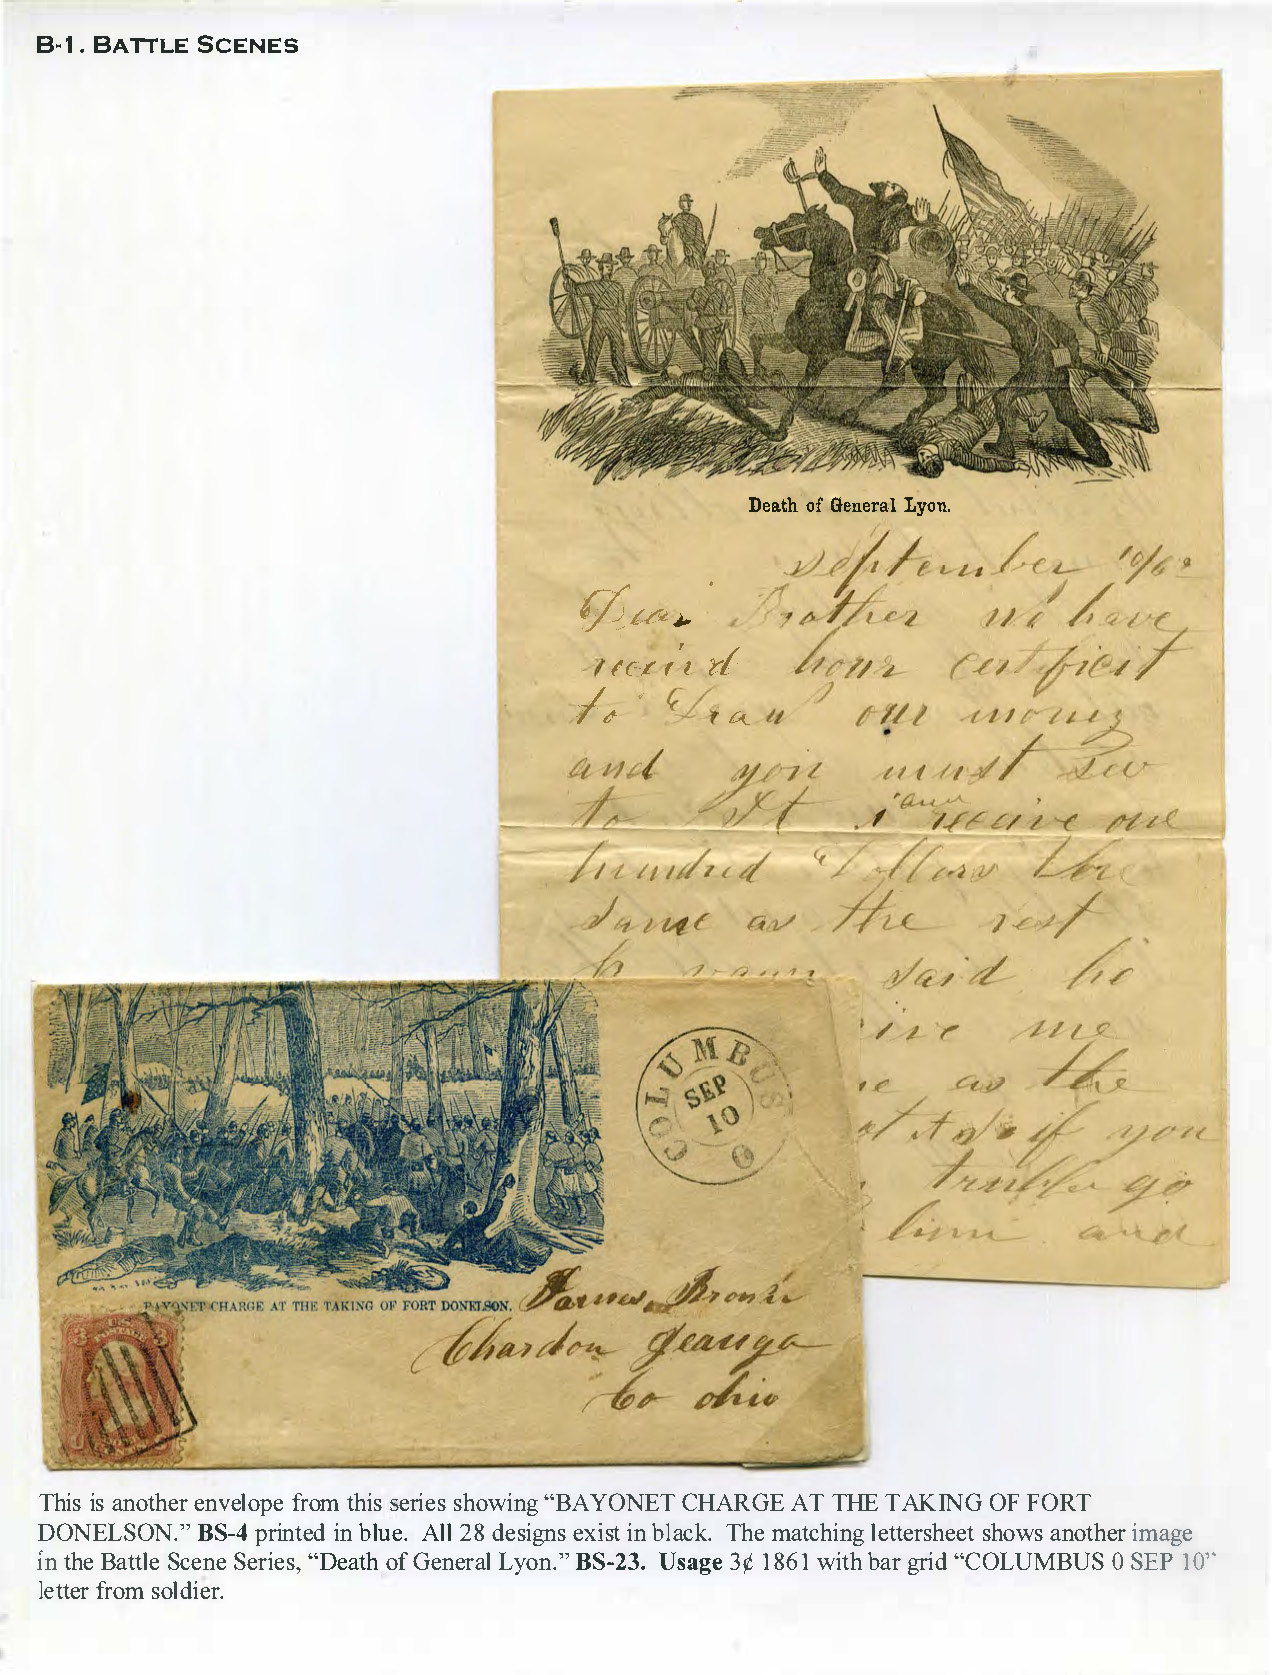 B-1. BATTLE SCENES
Death of General Lyon.
September 10/62
Dear Brother we have
receivd hour certificit
to Draw our money
and you must see
to It i receive one
hundred Dollars the
same as the rest
said he
me
as the
if you
go
him and
COLUMBUS O
SEP
10
BAYONET CHARGE AT THE TAKING OF FORT DONELSON.
Chardon Geauga
Co ohio
3 U.S. POSTAGE 3
This is another envelope from this series showing “BAYONET CHARGE AT THE TAKING OF FORT
DONELSON.” BS-4 printed in blue. All 28 designs exist in black. The matching lettersheet shows another image
in the Battle Scene Series, “Death of General Lyon.” BS-23. Usage 3¢ 1861 with bar grid “COLUMBUS 0 SEP 10”
letter from soldier.